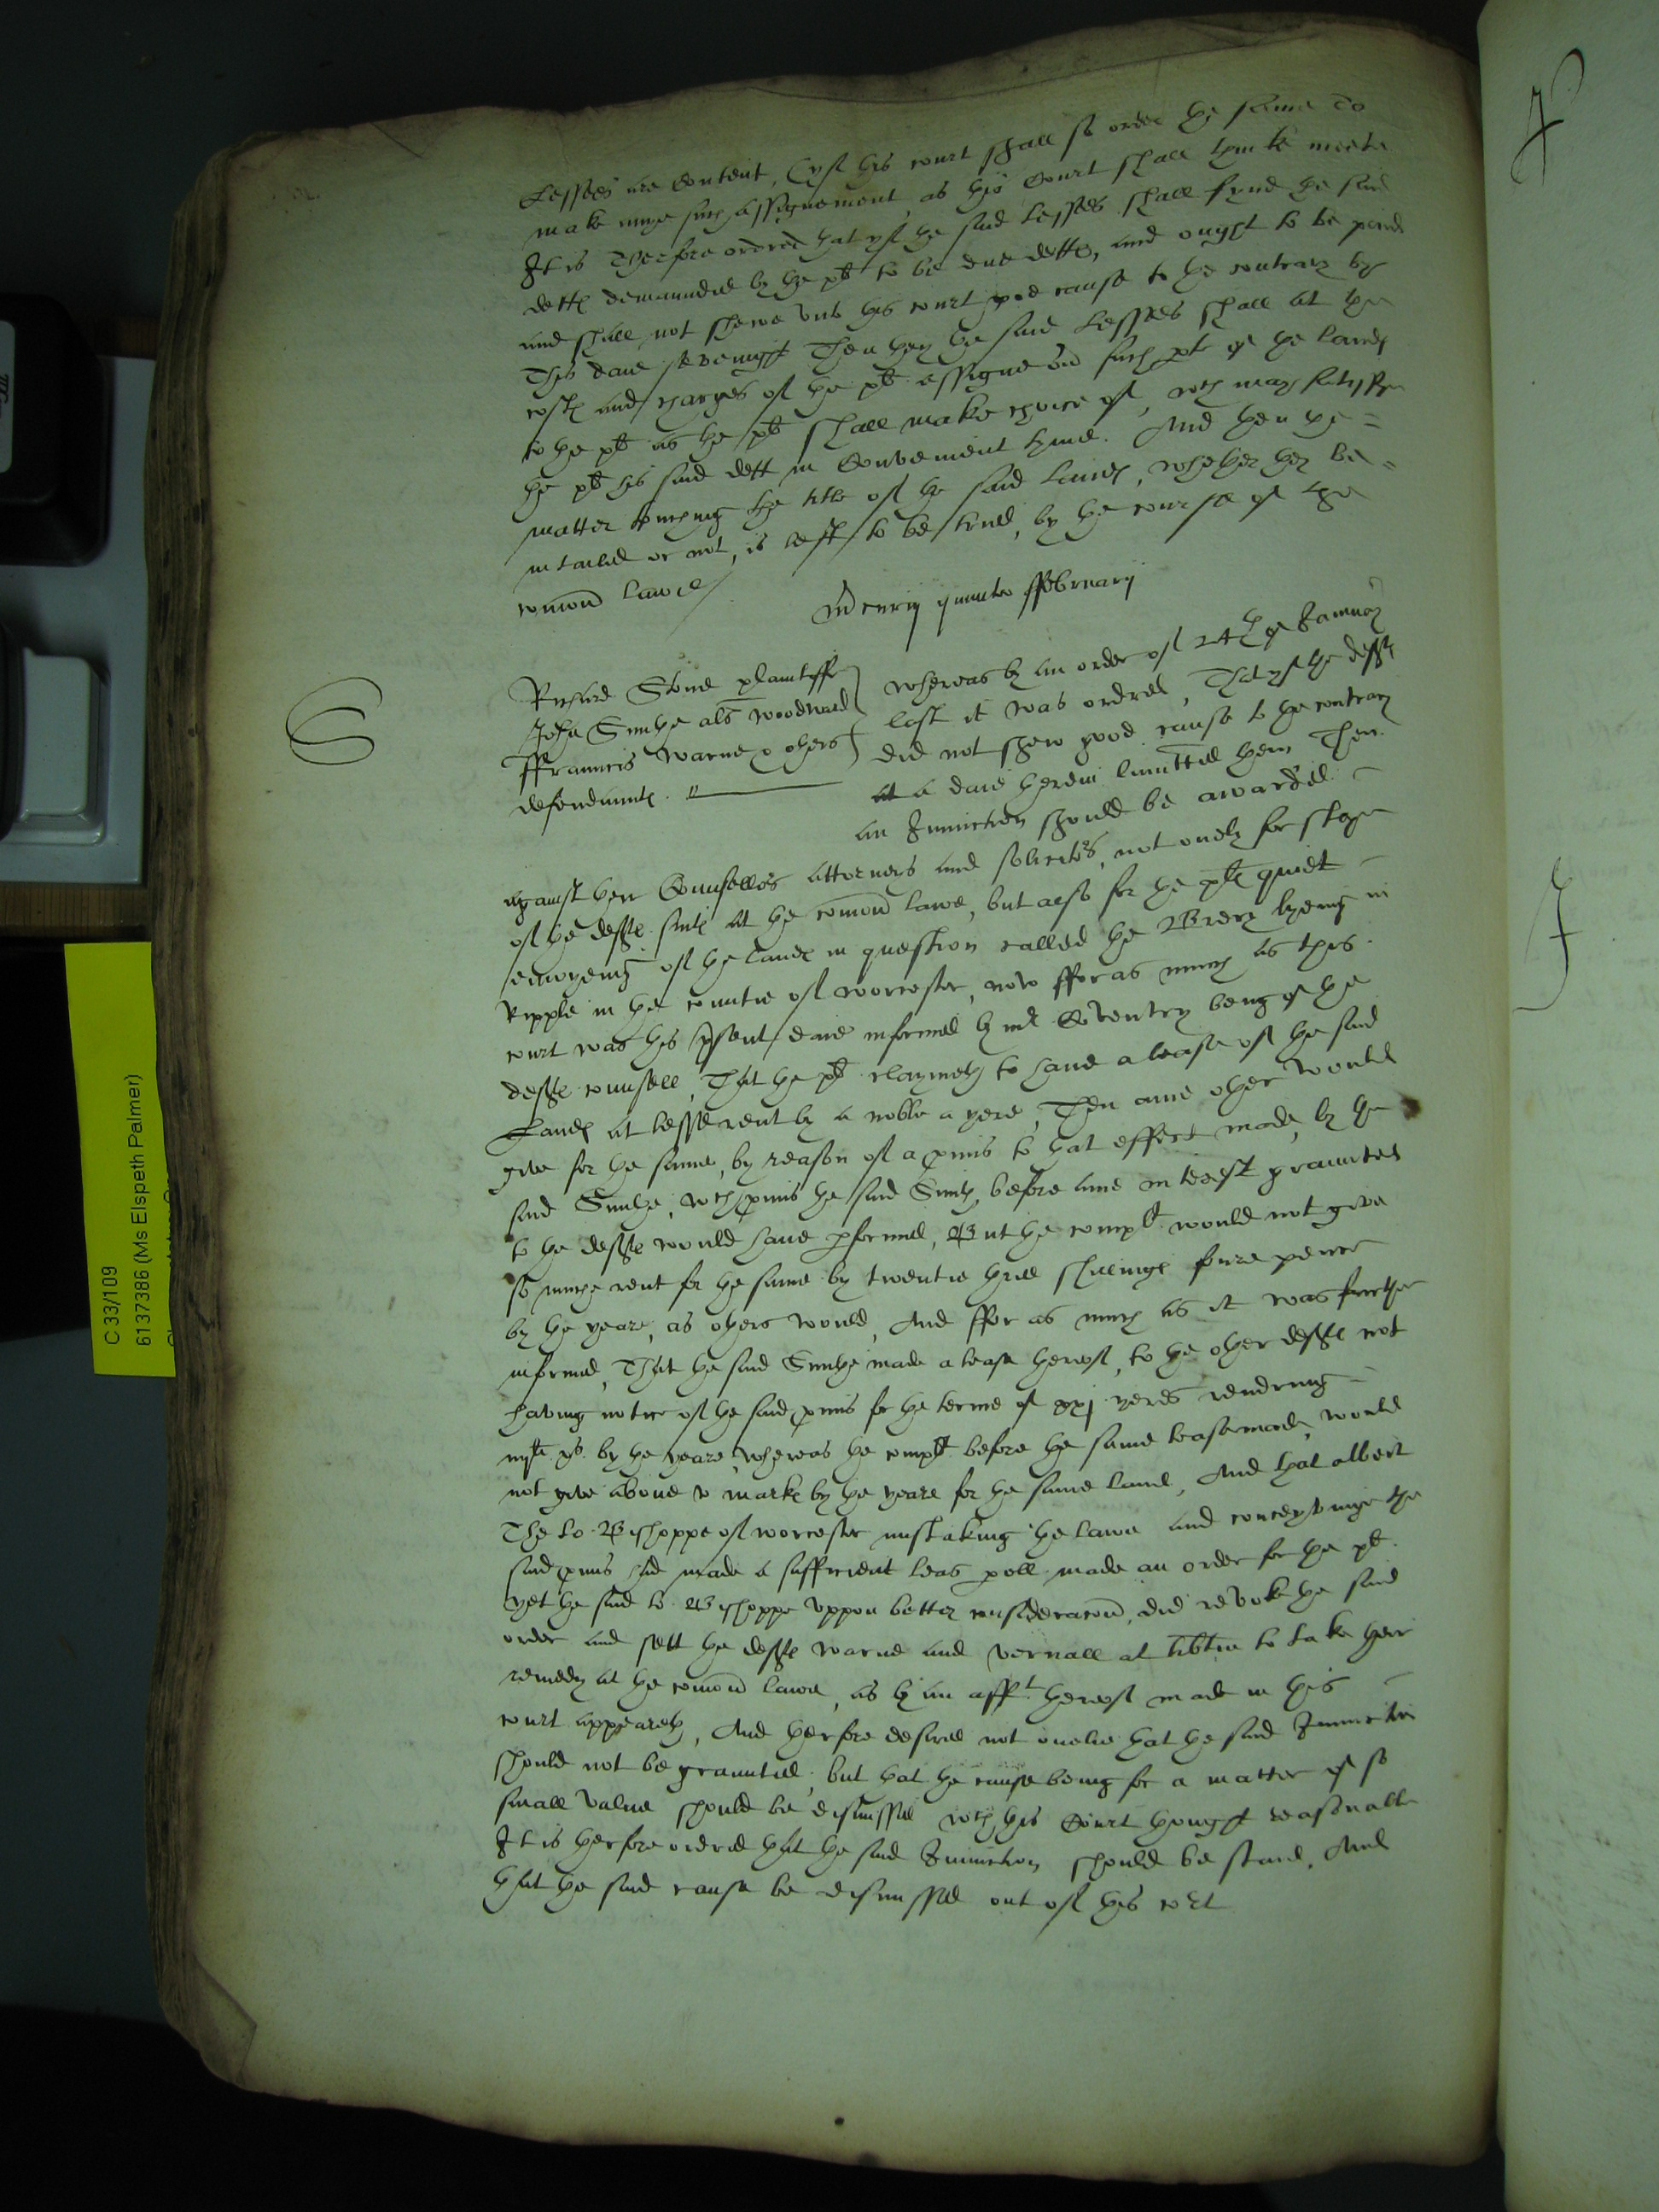 Lessees are content, (yf this court shall so order the same to
make unye such assignement, as this Court shall thinke meete
It is Therfore ordered that yf the said Lessees shall fynd the said
dette demaunded by the plt to be due dette, and ought to be paid
and shall not shewe unto this court good cause to the contrary by
This daie sevenight Then they the said Lessees shall at the
coste and charges of the plt assigne over such pte of the lande
to the plt as the plt shall make choice of, wch may satisfie
the plt his said dett in Convenient tyme. And then the =
matter touching the title of the said lande, whether they be =
intailed or not, is left to be tried, by the course of the
comon lawe /
Mercurij quinto ffebruarij
Richard Stone plaintiffe
John Smithe als woodward
ffrauncis Warne & others
defendaunte.
whereas by an order of 24th of January
last it was ordred, That yf the defte
did not shew good cause to the contrary
at a daie therein limitted them Then
an Iniunction should be awarded
against their Counsellors attorneys and solicitors, not onely for staye
of the defte suite at the comon lawe, but also for the plte quiet
enioyeing of the lande in question called the Brery lyeing in
Ripple in the countie of worcester, now fforas much as this
court was this psent daie informed by mr Coventry being of the
defte counsell, That the plt claymeth to have a lease of the said
Lande at lesse rent by a noble a yere, Then anie other would
give for the same, by reason of a pmis to that effect made, by the
said Smithe, wch pmis the said Smith, before anie interest graunted
to the defte would have pformed, But the complt would not give
so muche rent for the same by twentie three shillinge foure pence
by the yeare, as others would, And ffor as much as it was further
informed, That the said Smithe made a lease thereof, to the other defte not
having notice of the said pmis for the terme of xxj yeres rendring
by the yeare, whereas the complt before the same lease made, would
not give above v marke by the yeare for the same land, And that albeit
The Lo: Bishoppe of worcester mistaking the lawe and conceyvinge the
said pmis had made a sufficient leas poll made an order for the plt
yet the said lo: Bishoppe uppon better consideracon, did revoke the said
order and sett the defte warne and vernall at libtie to take their
remedy at the comon lawe, as by an afft thereof made in this
court appeareth, And therfore desired not onelie that the said Iniunction
should not be graunted, but that the cause being for a matter of so
small value should be dismissed wch this Court thought reasonable
It is therfore ordred that the said Iniunction should be staied, And
that the said cause be dismissed out of this cort
C 33/109
6137386 (Ms Elspeth Palmer)